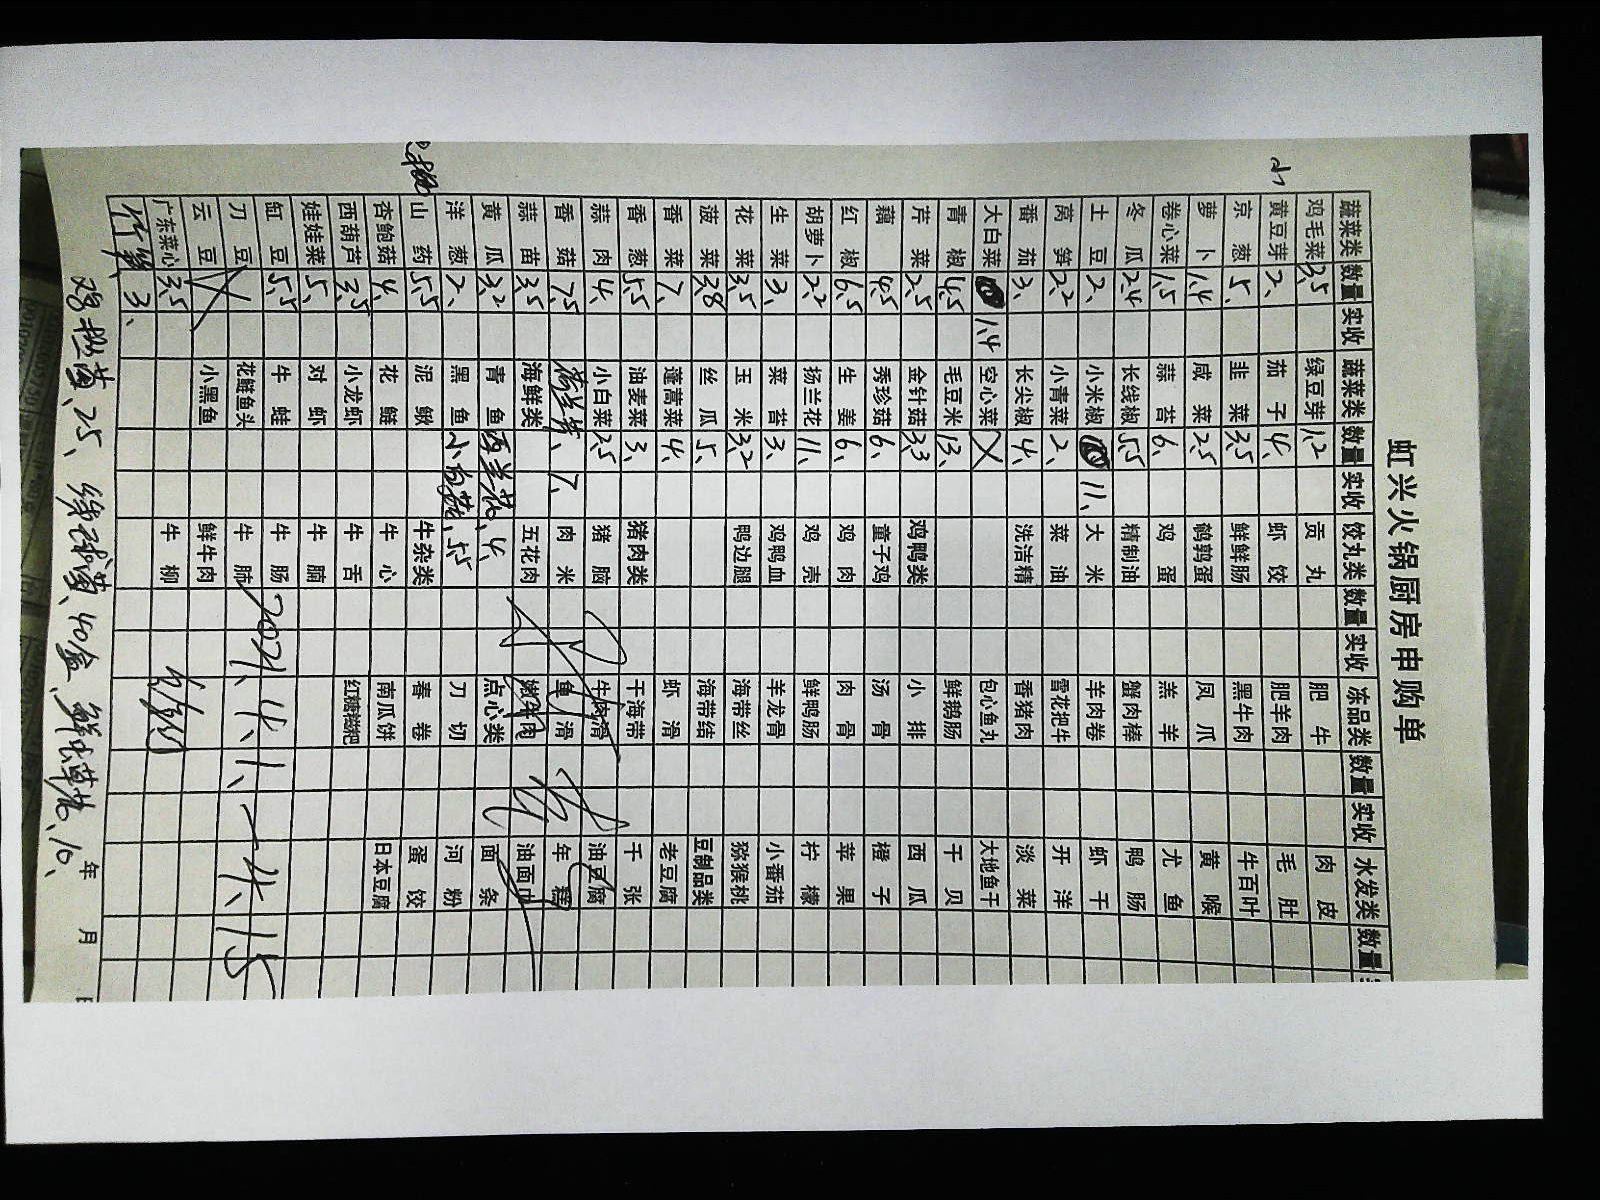 虹兴火锅厨房申购单
小
蔬菜类 数量 实收 蔬菜类 数量 实收 饺丸类 数量 实收 冻品类 数量 实收 水发类 数量
鸡毛菜 3.5 绿豆芽 1.2 贡丸 肥牛 肉皮
黄豆芽 2、 茄子 4、 虾饺 肥羊肉 毛肚
京葱 5、 韭菜 3.5 鲜鲜肠 黑牛肉 牛百叶
萝卜 1.4 咸菜 2.5 鹌鹑蛋 凤爪 黄喉
卷心菜 1.5 蒜苔 6、 鸡蛋 羔羊 尤鱼
冬瓜 2.4 长线椒 5.5 精制油 蟹肉棒 鸭肠
土豆 2、 小米椒 11、 大米 羊肉卷 虾干
莴笋 2.2 小青菜 2、 菜油 雪花把牛 开洋
番茄 3、 长尖椒 4、 洗洁精 香猪肉 淡菜
大白菜 1.4 空心菜 包心鱼丸 大地鱼干
青椒 4.5 毛豆米 13、 鲜鹅肠 干贝
芹菜 2.5 金针菇 3.3 鸡鸭类 小排 西瓜
藕 4.5 秀珍菇 6、 童子鸡 汤骨 橙子
红椒 6.5 生姜 6、 鸡肉 肉骨 苹果
胡萝卜 2.2 扬兰花 11、 鸡壳 鲜鸭肠 柠檬
生菜 3、 菜苔 3、 鸡鸭血 羊龙骨 小番茄
花菜 3.5 玉米 3.2 鸭边腿 海带丝 猕猴桃
菠菜 3.8 丝瓜 5、 海带结 豆制品类
香菜 7、 蓬蒿菜 4、 虾滑 老豆腐
香葱 5.5 油麦菜 3、 猪肉类 干海带 千张
蒜肉 4、 小白菜 2.5 猪脑 牛肉滑 油豆腐
香菇 7.5 7、 肉米 鱼滑 年糕
蒜苗 3.5 海鲜类 五花肉 嫩牛肉 油面巾
黄瓜 3.2 青鱼 西兰花、4、 点心类 面条
洋葱 2、 黑鱼 5.5 刀切 河粉
山药 5.5 泥鳅 牛杂类 春卷 蛋饺
杏鲍菇 4、 花鲢 牛心 南瓜饼 日本豆腐
西葫芦 3.5 小龙虾 牛舌 红糖糍粑
娃娃菜 5、 对虾 牛腩
缸豆 5.5 牛蛙 牛肠
刀豆 花鲢鱼头 牛肺 2021、4、
云豆 小黑鱼 鲜牛肉
广东菜心 3.5 牛柳
3、
年 月